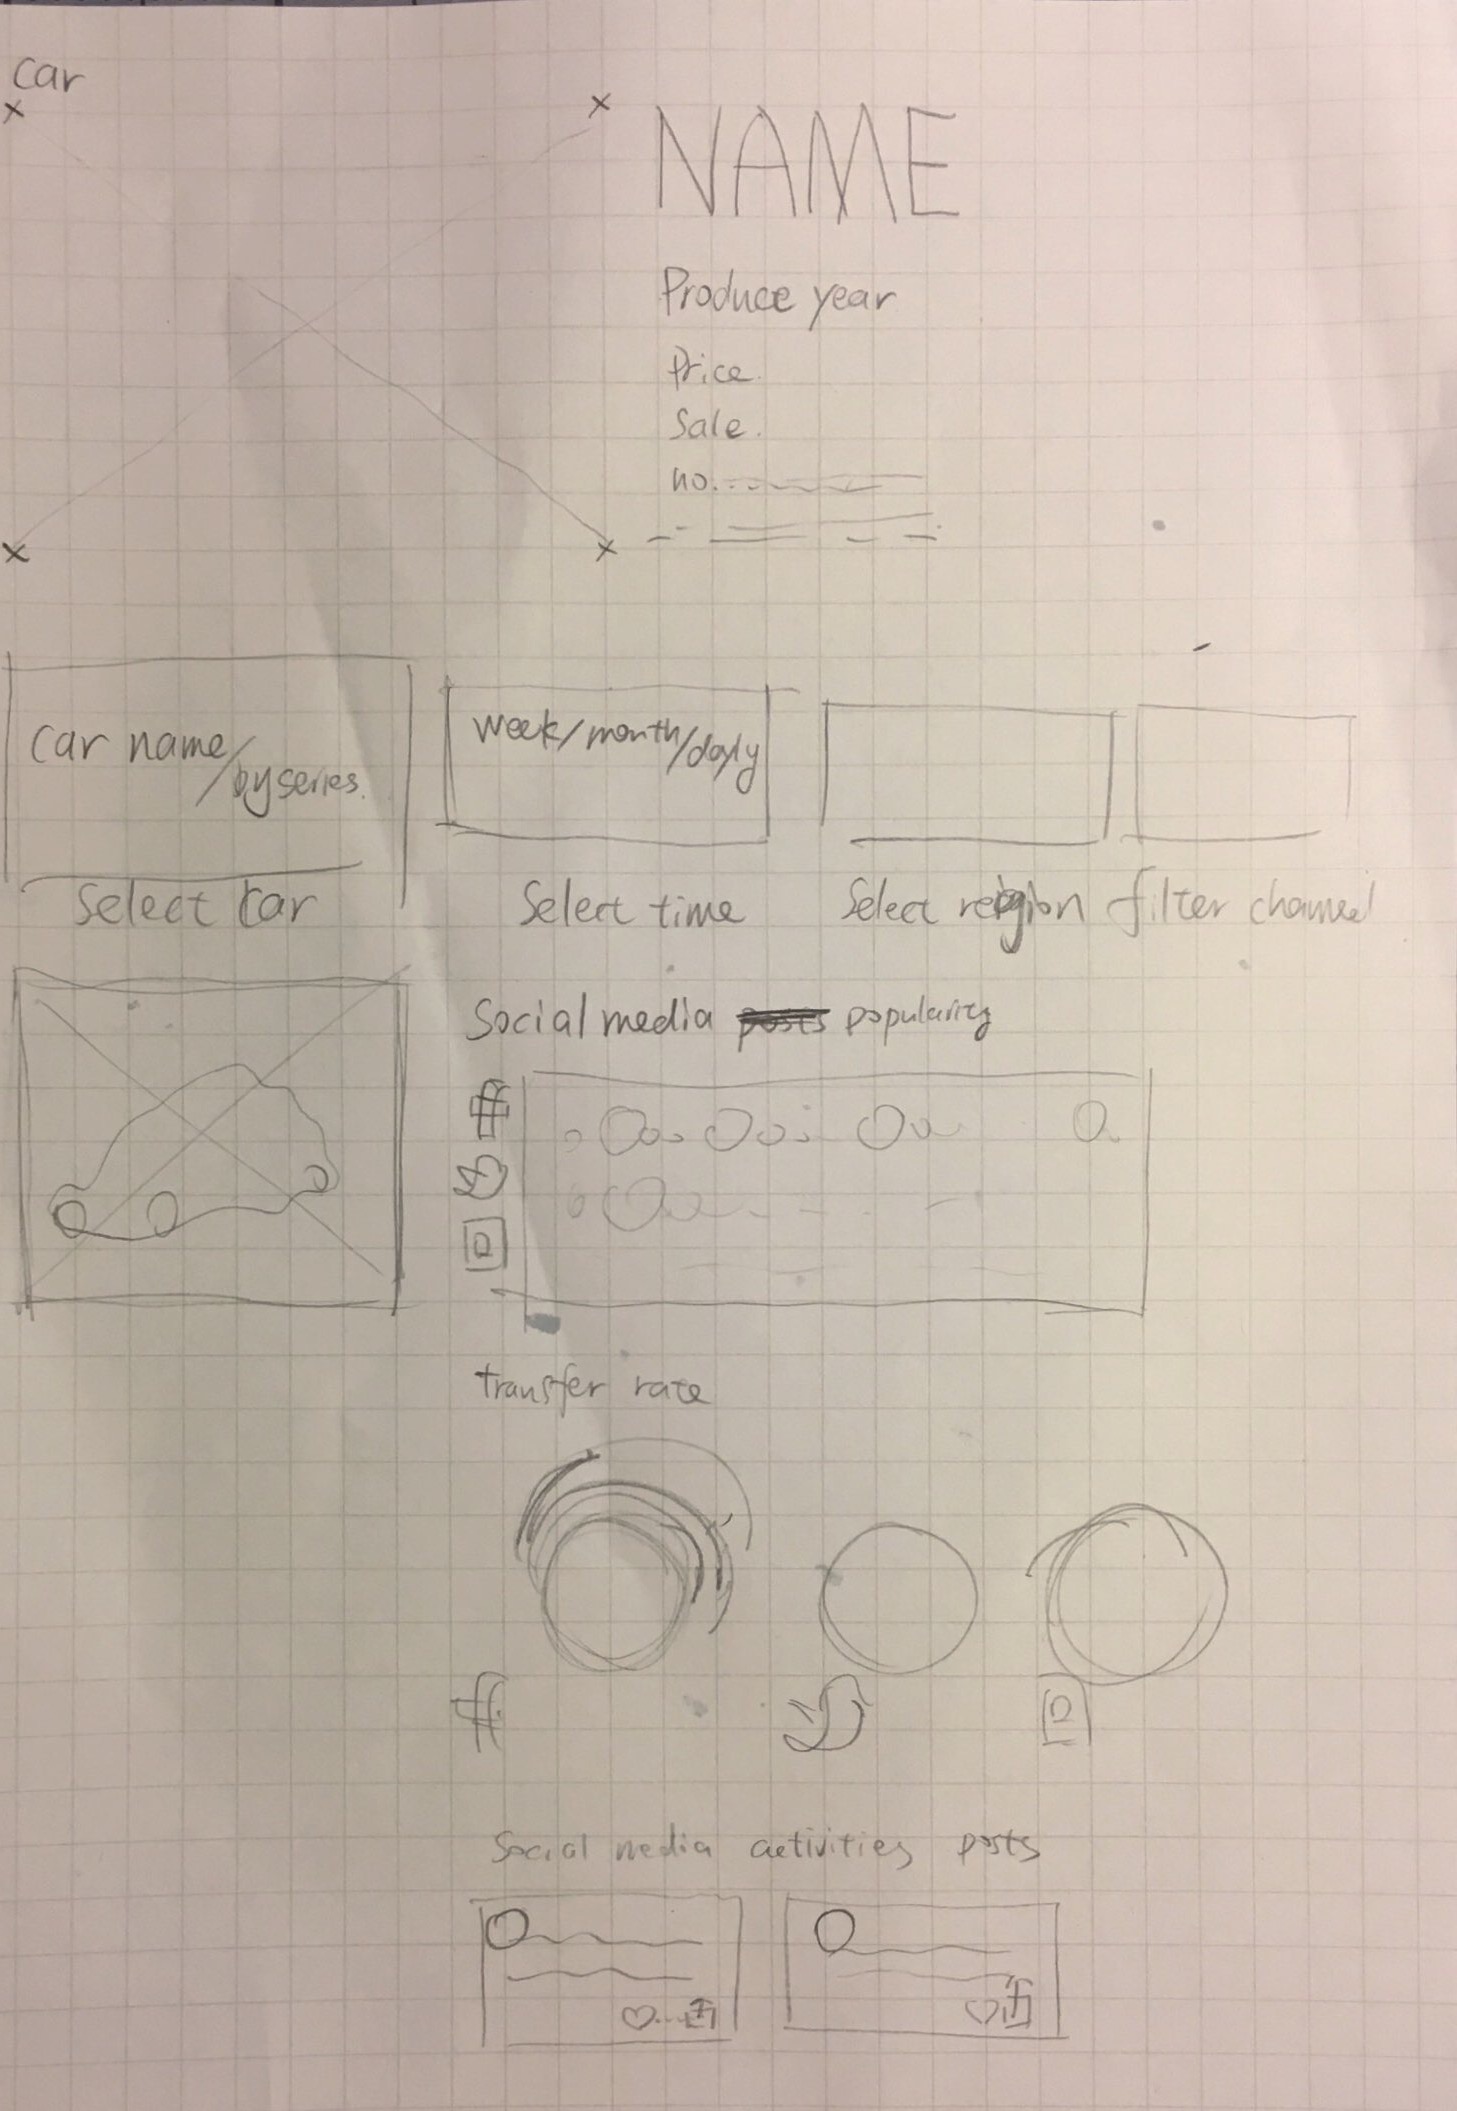 Car
NAME
Produce year
Price.
Sale.
no.
Car name/by series.
week/month/dayly
Select Car
Select time
Select region
filter channel
Social media posts popularity
transfer rate
Social media activities posts